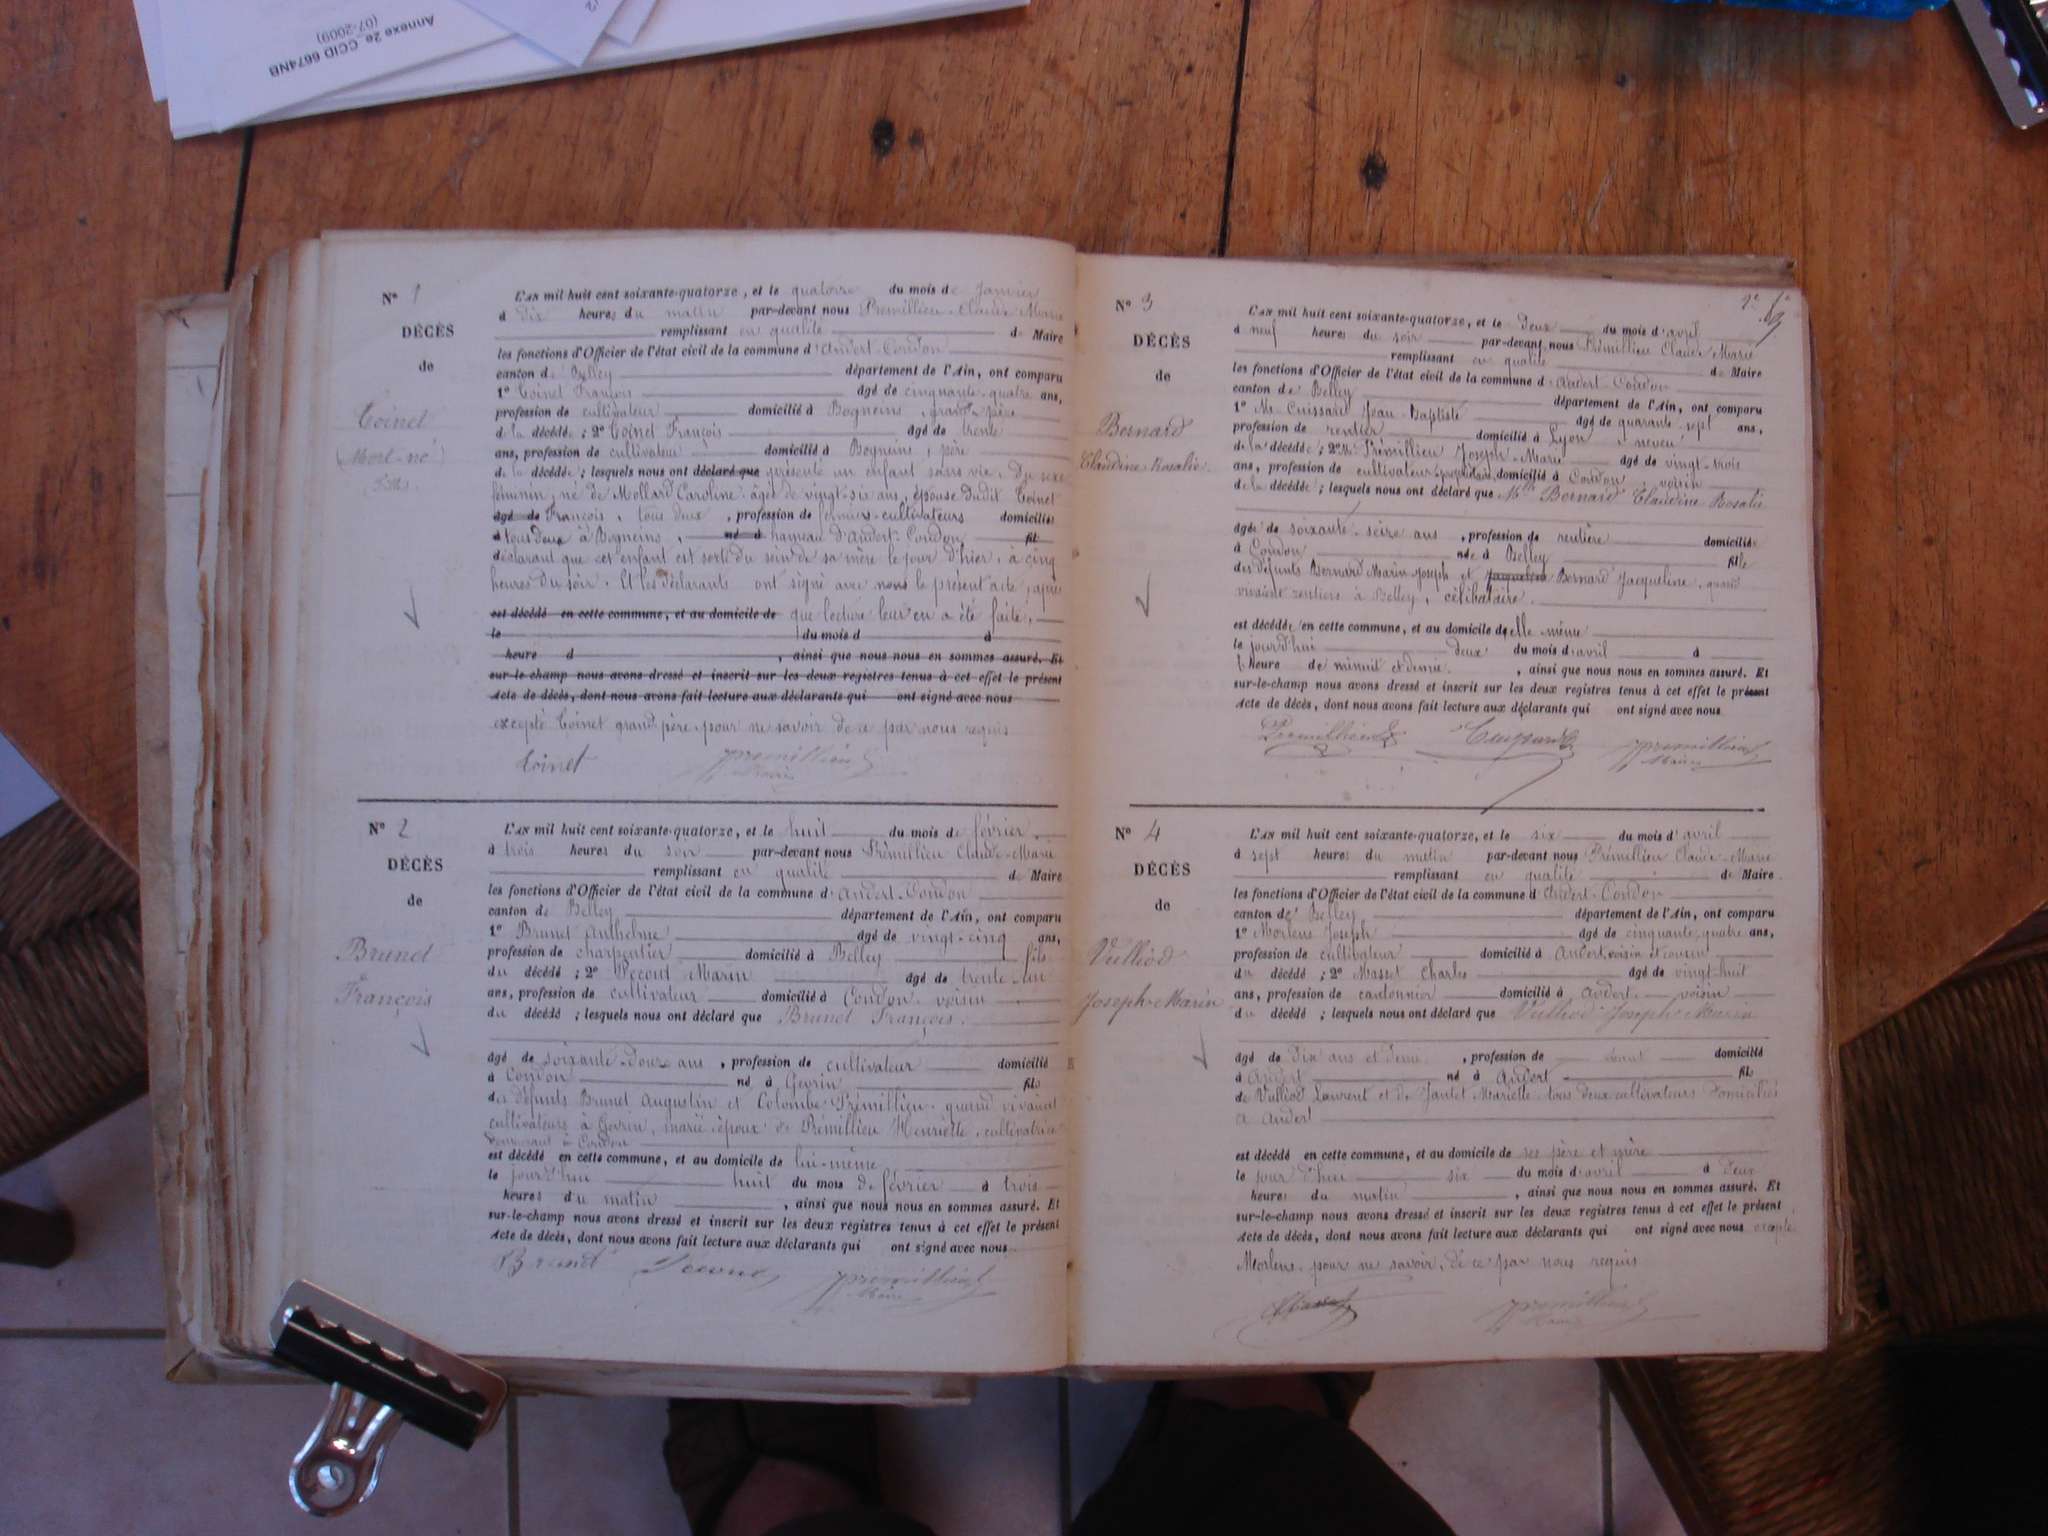 Annexe 2e CCID 6674NB
(07-2009)
N° 1
DÉCÈS
de
Coinet
(Mort-né)
L'AN mil huit cent soixante-quatorze, et le quatorze du mois de Janvier
à dix heures du matin par-devant nous Prémillieu Claude Marie
remplissant en qualité de Maire
les fonctions d'Officier de l'état civil de la commune d'Andert-Condon
canton de Belley département de l'Ain, ont comparu
1° Coinet François âgé de cinquante-quatre ans,
profession de cultivateur domicilié à Bogneins, grand-père
de la décédée; 2° Coinet François âgé de trente
ans, profession de cultivateur domicilié à Bogneins, père
de la décédée; lesquels nous ont déclaré que présenté un enfant sans vie, du sexe
féminin, né de Mollard Caroline âgée de vingt-six ans, épouse dudit Coinet
âgé de François, tous deux, profession de fermiers-cultivateurs domiciliés
à tous deux à Bogneins, né à hameau d'Andert-Condon fil
déclarant que cet enfant est sorti du sein de sa mère le jour d'hier, à cinq
heures du soir. Et les déclarants ont signé avec nous le présent acte, après
est décédé en cette commune, et au domicile de que lecture leur en a été faite,
le du mois d à
heure d, ainsi que nous nous en sommes assuré. Et
sur-le-champ nous avons dressé et inscrit sur les deux registres tenus à cet effet le présent
Acte de décès, dont nous avons fait lecture aux déclarants qui ont signé avec nous
excepté Coinet grand père pour ne savoir de ce par nous requis
Coinet Prémillieu
Maire
N° 2
DÉCÈS
de
Brunet
François
L'AN mil huit cent soixante-quatorze, et le huit du mois de février
à trois heures du soir par-devant nous Prémillieu Claude-Marie
remplissant en qualité de Maire
les fonctions d'Officier de l'état civil de la commune d'Andert-Condon
canton de Belley département de l'Ain, ont comparu
1° Brunet Anthelme âgé de vingt-cinq ans,
profession de charpentier domicilié à Belley fils
du décédé; 2° Pecoud Marin âgé de trente-un
ans, profession de cultivateur domicilié à Condon voisin
du décédé; lesquels nous ont déclaré que Brunet François.
âgé de soixante-douze ans, profession de cultivateur domicilié
à Condon né à Gevrin fils
des défunts Brunet Augustin et Colombe Prémillieu, quand vivaient
cultivateurs à Gevrin, marié époux de Prémillieu Henriette, cultivatrice
demeurant à Condon
est décédé en cette commune, et au domicile de lui-même
le jourd'hui huit du mois de février à trois
heures du matin, ainsi que nous nous en sommes assuré. Et
sur-le-champ nous avons dressé et inscrit sur les deux registres tenus à cet effet le présent
Acte de décès, dont nous avons fait lecture aux déclarants qui ont signé avec nous
Brunet Prémillieu
Maire
N° 3
DÉCÈS
de
Bernard
Claudine-Rosalie
L'AN mil huit cent soixante-quatorze, et le deux du mois d'avril
à neuf heures du soir par-devant nous Prémillieu Claude Marie
remplissant en qualité de Maire
les fonctions d'Officier de l'état civil de la commune d'Andert-Condon
canton de Belley département de l'Ain, ont comparu
1° Mr Cuissard Jean-Baptiste âgé de quarante-sept ans,
profession de rentier domicilié à Lyon neveu
de la décédée; 2° Mr Prémillieu Joseph-Marie âgé de vingt-trois
ans, profession de cultivateur propriétaire domicilié à Condon voisin
de la décédée; lesquels nous ont déclaré que Mlle Bernard Claudine Rosalie
âgée de soixante-seize ans, profession de rentière domiciliée
à Condon née à Belley fille
des défunts Bernard Marin-Joseph et Jacqueline Bernard Jacqueline, quand
vivaient rentiers à Belley, célibataire.
est décédée en cette commune, et au domicile d'elle-même
le jourd'hui deux du mois d'avril à
heure de minuit et demie, ainsi que nous nous en sommes assuré. Et
sur-le-champ nous avons dressé et inscrit sur les deux registres tenus à cet effet le présent
Acte de décès, dont nous avons fait lecture aux déclarants qui ont signé avec nous
Prémillieu Cuissard Prémillieu
Maire
N° 4
DÉCÈS
de
Vulliod
Joseph-Marin
L'AN mil huit cent soixante-quatorze, et le six du mois d'avril
à sept heures du matin par-devant nous Prémillieu Claude-Marie
remplissant en qualité de Maire
les fonctions d'Officier de l'état civil de la commune d'Andert-Condon
canton de Belley département de l'Ain, ont comparu
1° Morlens Joseph âgé de cinquante-quatre ans,
profession de cultivateur domicilié à Andert, voisin et cousin
du décédé; 2° Masset Charles âgé de vingt-huit
ans, profession de cantonnier domicilié à Andert voisin
du décédé; lesquels nous ont déclaré que Vulliod Joseph-Marin
âgé de dix ans et demi, profession de domicilié
à Andert né à Andert fils
de Vulliod Laurent et de Jantet Mariette tous deux cultivateurs domiciliés
à Andert
est décédé en cette commune, et au domicile de ses père et mère
le jour d'hui six du mois d'avril à deux
heures du matin, ainsi que nous nous en sommes assuré. Et
sur-le-champ nous avons dressé et inscrit sur les deux registres tenus à cet effet le présent
Acte de décès, dont nous avons fait lecture aux déclarants qui ont signé avec nous excepté
Morlens pour ne savoir, de ce par nous requis
Prémillieu
Maire